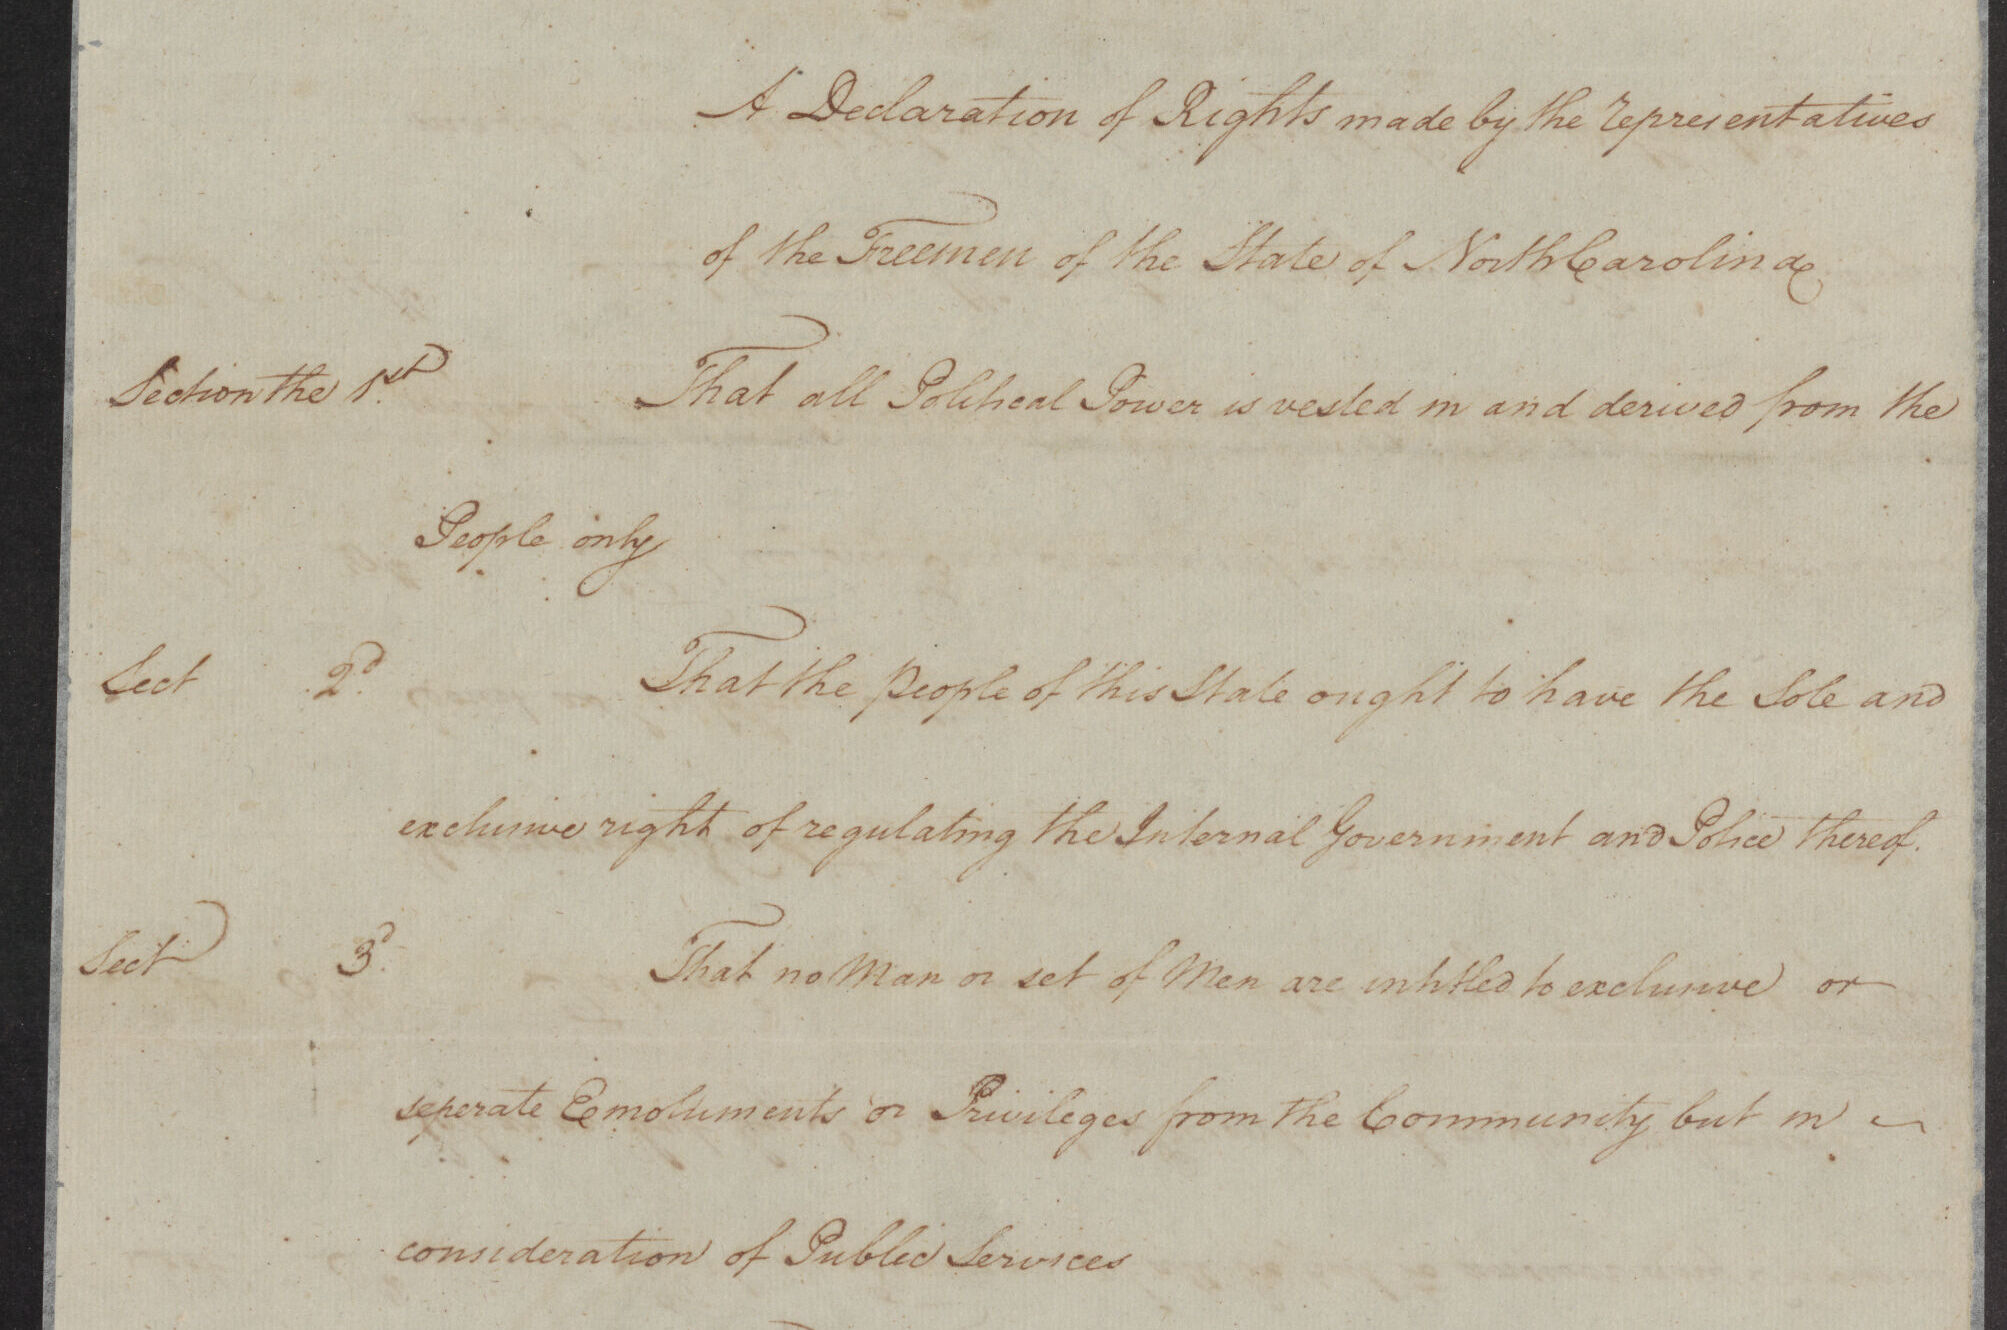 A Declaration of Rights made by the representatives
of the Freemen of the State of North Carolina
Section the 1st. That all Political Power is vested in and derived from the
People only
Sect 2d. That the people of this State ought to have the Sole and
exclusive right of regulating the Internal Government and Police thereof.
Sect 3d. That no Man or set of Men are intitled to exclusive or
seperate Emoluments or Privileges from the Community but in
consideration of Public Services